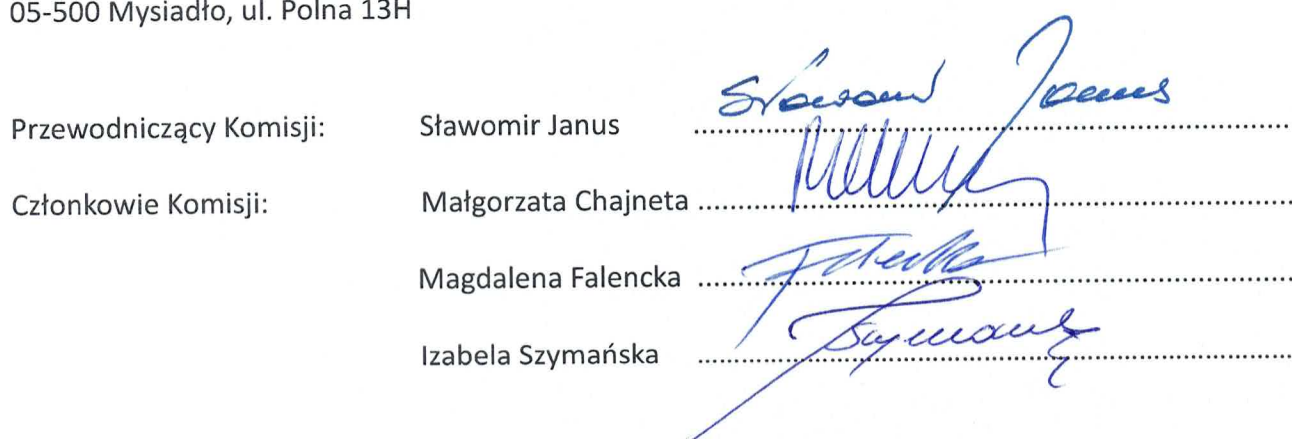 05-500 Mysiadło, ul. Polna 13H
Przewodniczący Komisji: Sławomir Janus ..........
Sławomir Janus
Członkowie Komisji: Małgorzata Chajneta ..........
Magdalena Falencka ..........
Izabela Szymańska ..........